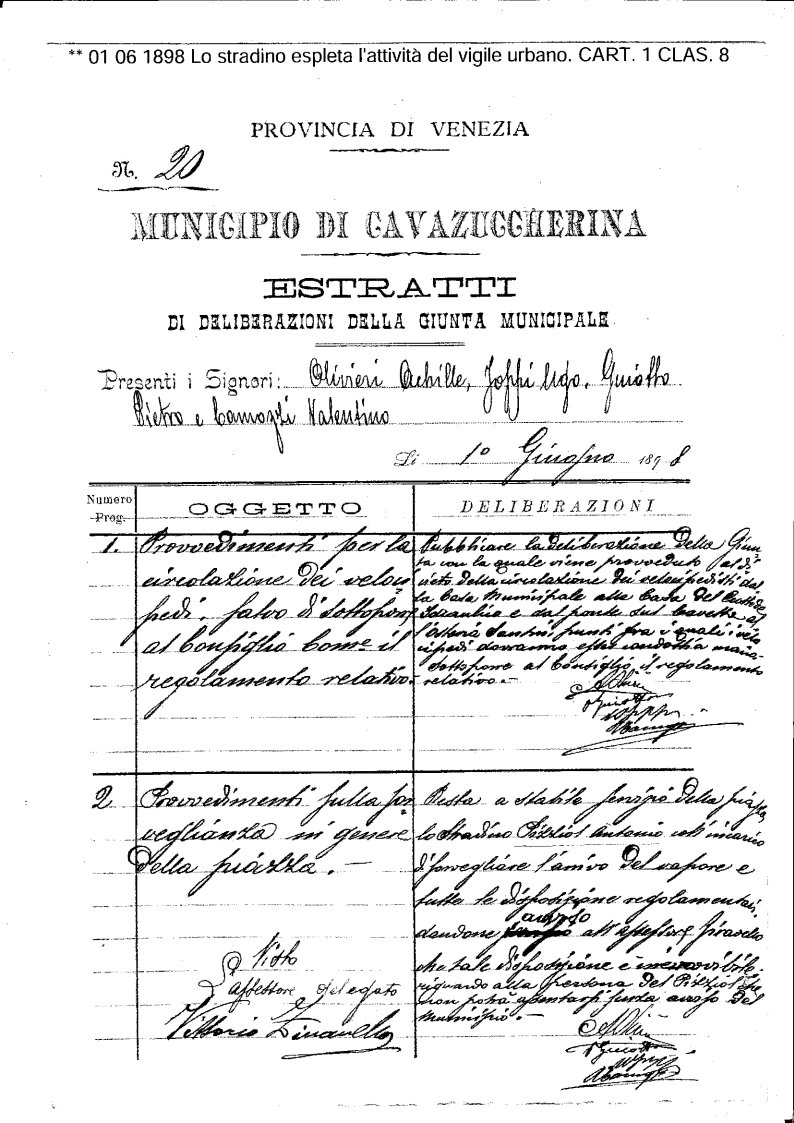 ** 01 06 1898 Lo stradino espleta l'attività del vigile urbano. CART. 1 CLAS. 8
PROVINCIA DI VENEZIA
N. 20
MUNICIPIO DI CAVAZUCCHERINA
ESTRATTI
DI DELIBERAZIONI DELLA GIUNTA MUNICIPALE
Presenti i Signori: Olivieri Achille, Joppi Ugo, Guiotto
Pietro e Camozzi Valentino
Li 1° Giugno 1898
Numero
Prog.
OGGETTO
DELIBERAZIONI
1.
Provvedimenti per la
circolazione dei veloci
pedi, salvo di sottoporre
al Consiglio Come il
regolamento relativo.-
Pubblicare la deliberazione della Giun
ta con la quale viene provveduto al di
vieto della circolazione dei velocipedisti dal
la Casa Municipale alla Casa del
e dal ponte sul Cavetta al
l'Osteria Santini punti fra i quali i velo
cipedi dovranno esser condotti a mano.
Sottoporre al Consiglio il regolamento
relativo.-
2.
Provvedimenti sulla sor
veglianza in genere
della piazza.-
Resta a stabile servizio della piazza
lo Stradino Antonio coll'incarico
di sorvegliare l'arrivo del vapore e
tutte le disposizione regolamentari,
dandone avviso all'assessore
che tale disposizione è
riguardo alla persona del che
non potrà assentarsi senza avviso del
Municipio.-
Visto
L'assessore delegato
Vittorio